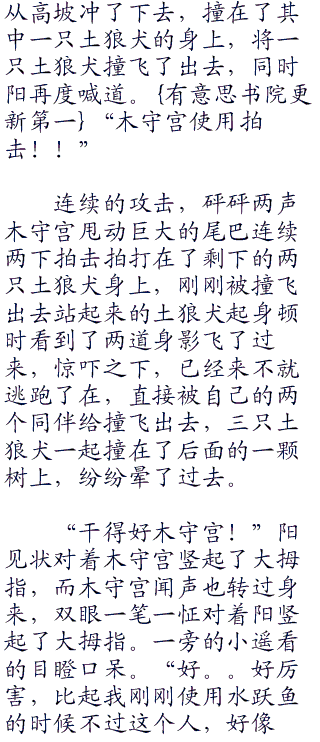 从高坡冲了下去，撞在了其
中一只土狼犬的身上，将一
只土狼犬撞飞了出去，同时
阳再度喊道。{有意思书院更
新第一}“木守宫使用拍
击！！”
连续的攻击，砰砰两声
木守宫甩动巨大的尾巴连续
两下拍击拍打在了剩下的两
只土狼犬身上，刚刚被撞飞
出去站起来的土狼犬起身顿
时看到了两道身影飞了过
来，惊吓之下，已经来不就
逃跑了在，直接被自己的两
个同伴给撞飞出去，三只土
狼犬一起撞在了后面的一颗
树上，纷纷晕了过去。
“干得好木守宫！”阳
见状对着木守宫竖起了大拇
指，而木守宫闻声也转过身
来，双眼一笔一怔对着阳竖
起了大拇指。一旁的小遥看
的目瞪口呆。“好。。好厉
害，比起我刚刚使用水跃鱼
的时候不过这个人，好像